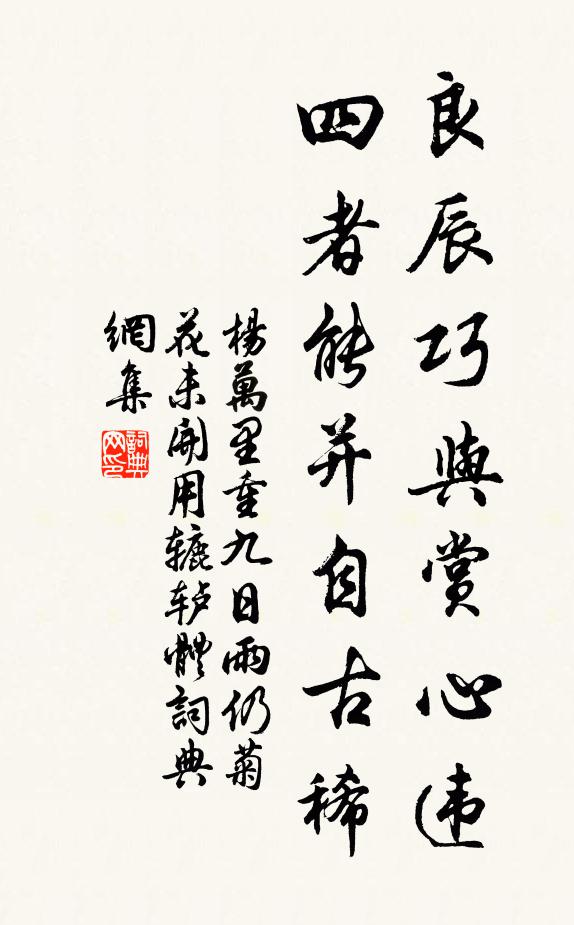 良辰巧與賞心违
四者能并自古稀
楊萬里重九日雨仍菊
花未開用辘轳體詞典
網集
詞典网印